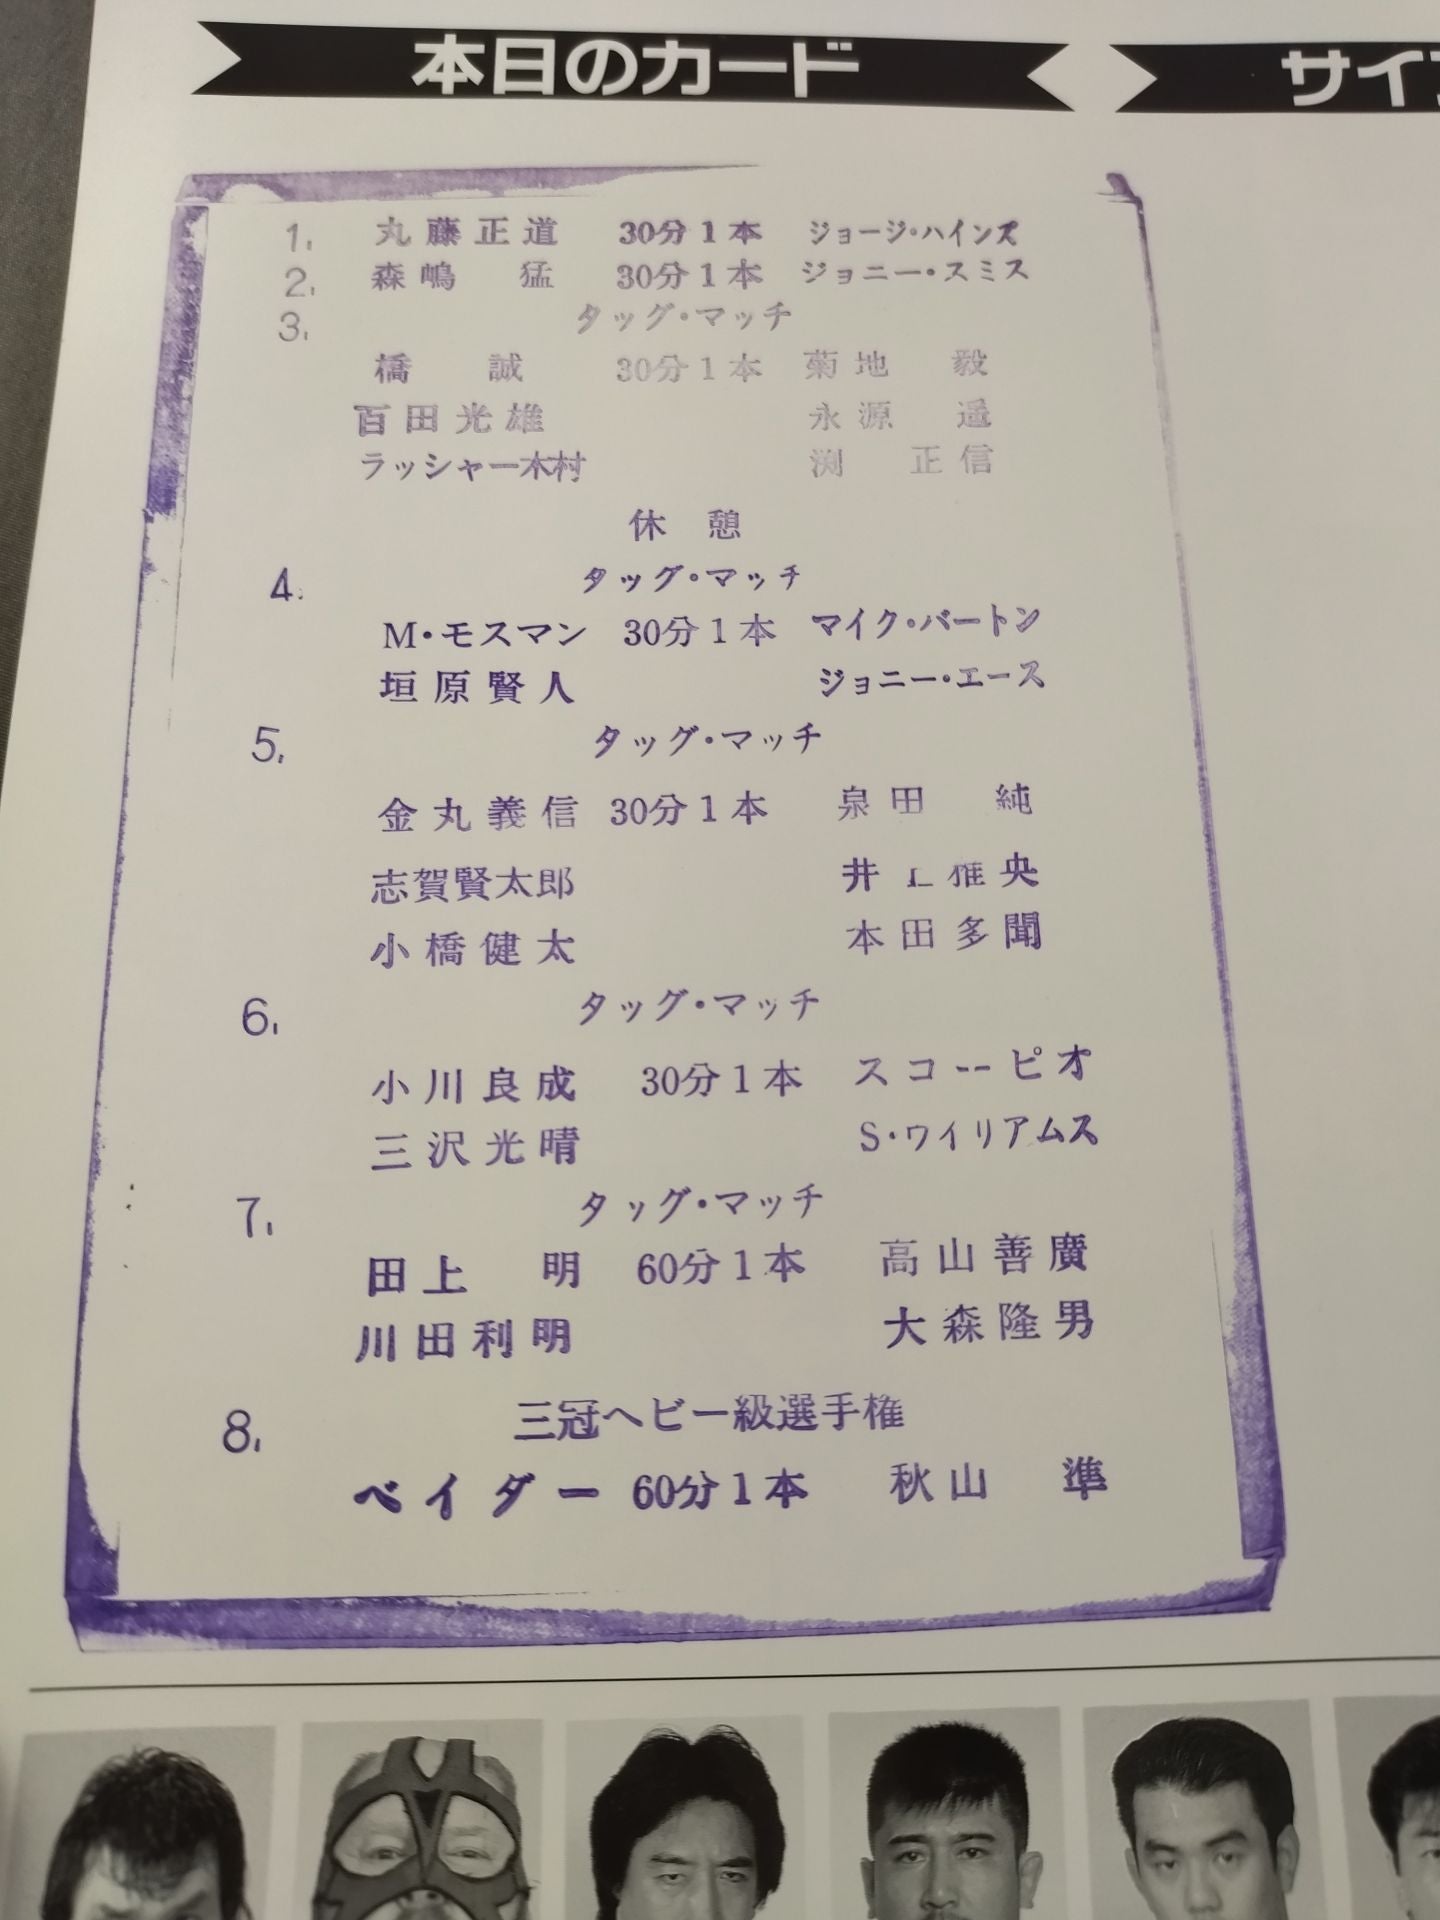 本日のカード
サイ
1. 丸藤正道 30分1本 ジョージ・ハインズ
2. 森嶋 猛 30分1本 ジョニー・スミス
3. タッグ・マッチ
橋 誠 30分1本 菊地 毅
百田光雄 永源 遥
ラッシャー木村 渕 正信
休 憩
4. タッグ・マッチ
M・モスマン 30分1本 マイク・バートン
垣原賢人 ジョニー・エース
5. タッグ・マッチ
金丸義信 30分1本 泉田 純
志賀賢太郎 井上雅央
小橋健太 本田多聞
6. タッグ・マッチ
小川良成 30分1本 スコーピオ
三沢光晴 S・ウイリアムス
7. タッグ・マッチ
田上 明 60分1本 高山善廣
川田利明 大森隆男
8. 三冠ヘビー級選手権
ベイダー 60分1本 秋山 準